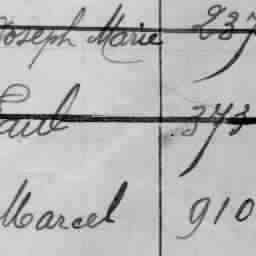 Joseph Marie 237
Paul 373
Marcel 910